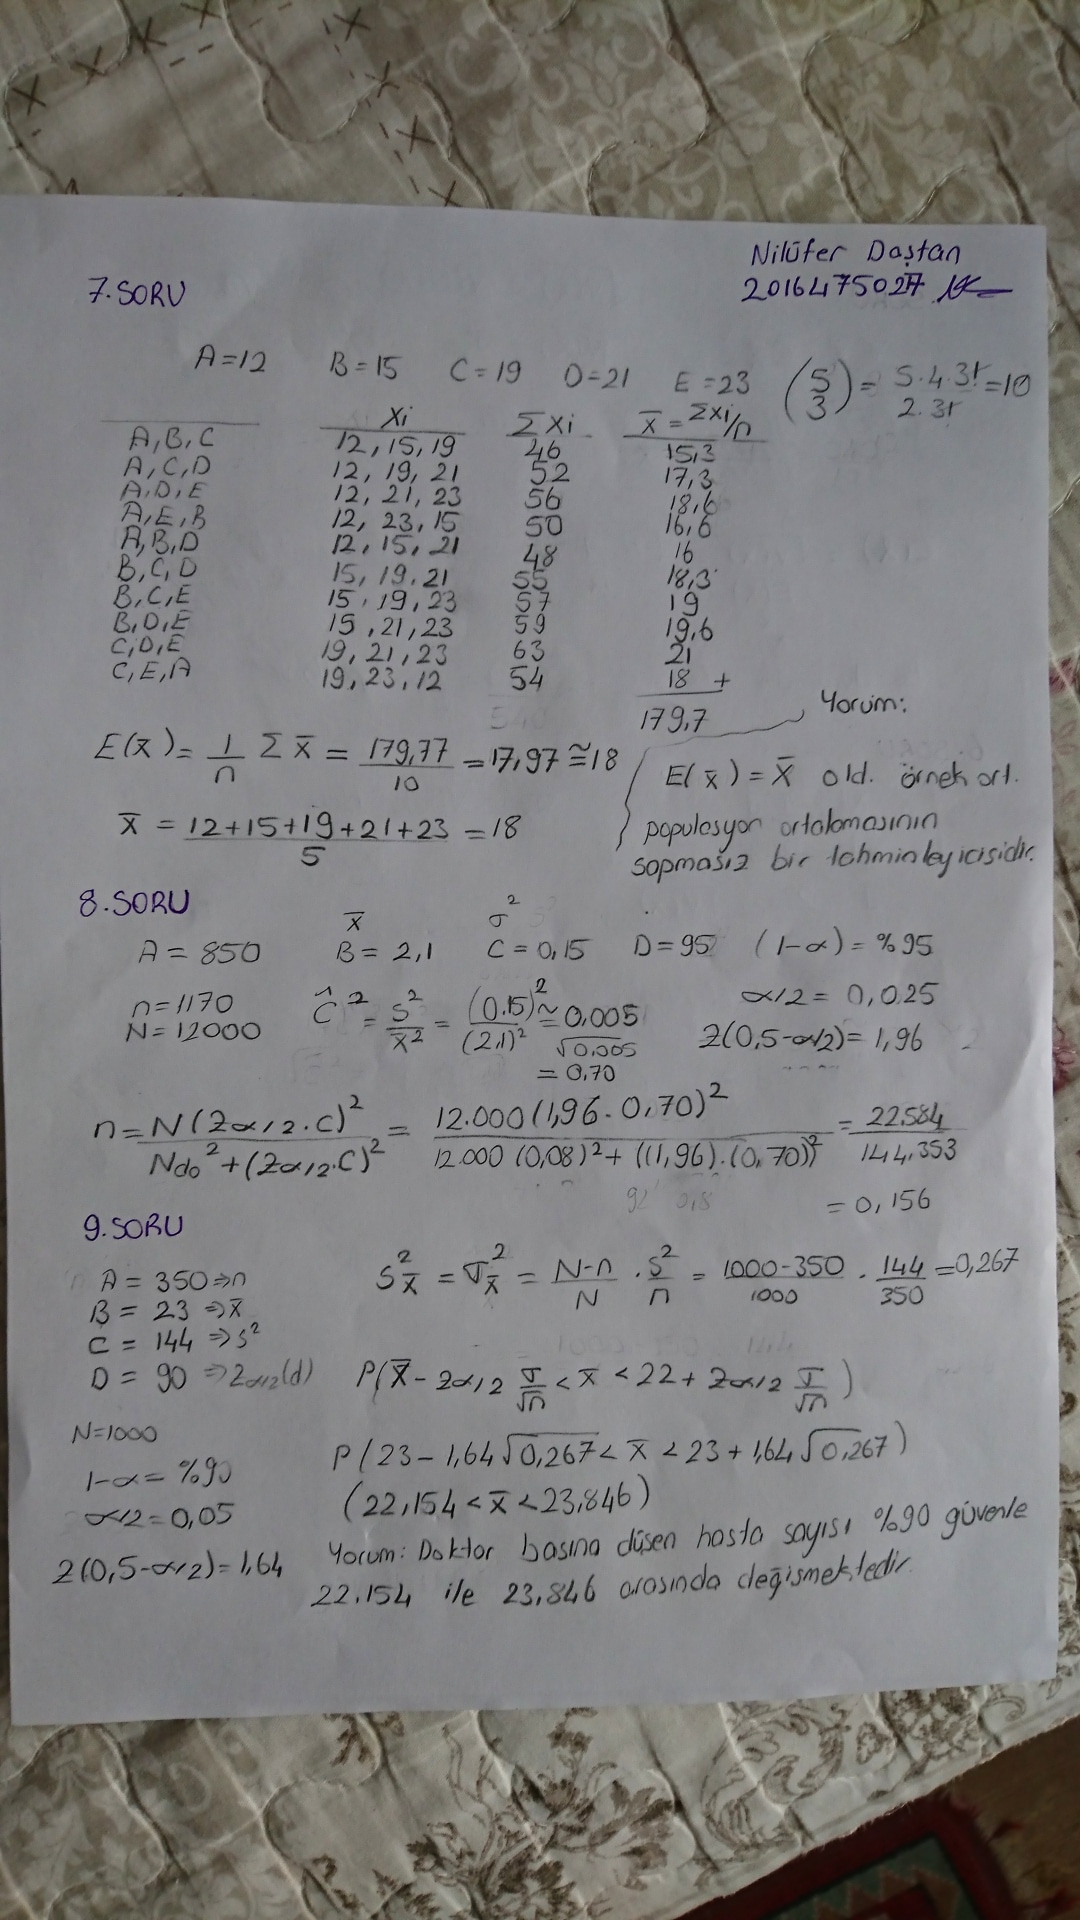 Nilüfer Daştan
2016475027
7.SORU
A=12 B=15 C=19 D=21 E=23 (5 3) = 5.4.3!/2.3! = 10
Xi ΣXi x̄ = Σxi/n
A,B,C 12,15,19 46 15,3
A,C,D 12,19,21 52 17,3
A,D,E 12,21,23 56 18,6
A,E,B 12,23,15 50 16,6
A,B,D 12,15,21 48 16
B,C,D 15,19,21 55 18,3
B,C,E 15,19,23 57 19
B,D,E 15,21,23 59 19,6
C,D,E 19,21,23 63 21
C,E,A 19,23,12 54 18 +
179,7
Yorum:
E(x̄) = 1/n Σ x̄ = 179,77/10 = 17,97 ≅ 18
E(x̄) = X̄ old. örnek ort.
x̄ = 12+15+19+21+23/5 = 18
populasyon ortalamasının
sapmasız bir tahminleyicisidir.
8.SORU
x̄ σ²
A = 850 B = 2,1 C = 0,15 D = 95 (1-α) = %95
n=1170
N=12000
Ĉ² = s²/x̄² = (0.15)²/(2,1)² ≅ 0,005
√0,005
= 0,70
α/2 = 0,025
Z(0,5-α/2) = 1,96
n = N(Zα/2.C)²/Ndo²+(Zα/2.C)² = 12.000(1,96.0,70)²/12.000(0,08)²+((1,96).(0,70))² = 22.584/144,353
= 0,156
9.SORU
A = 350 ⇒ n
B = 23 ⇒ x̄
C = 144 ⇒ s²
D = 90 ⇒ Zα/2(d)
S²x̄ = σ²x̄ = N-n/N . s²/n = 1000-350/1000 . 144/350 = 0,267
P(x̄ - Zα/2 σ/√n < x̄ < 22 + Zα/2 σ/√n)
N=1000
1-α = %90
α/2 = 0,05
Z(0,5-α/2) = 1,64
P(23 - 1,64√0,267 < x̄ < 23 + 1,64√0,267)
(22,154 < x̄ < 23,846)
Yorum: Doktor basına düşen hasta sayısı %90 güvenle
22.154 ile 23,846 arasında değişmektedir.